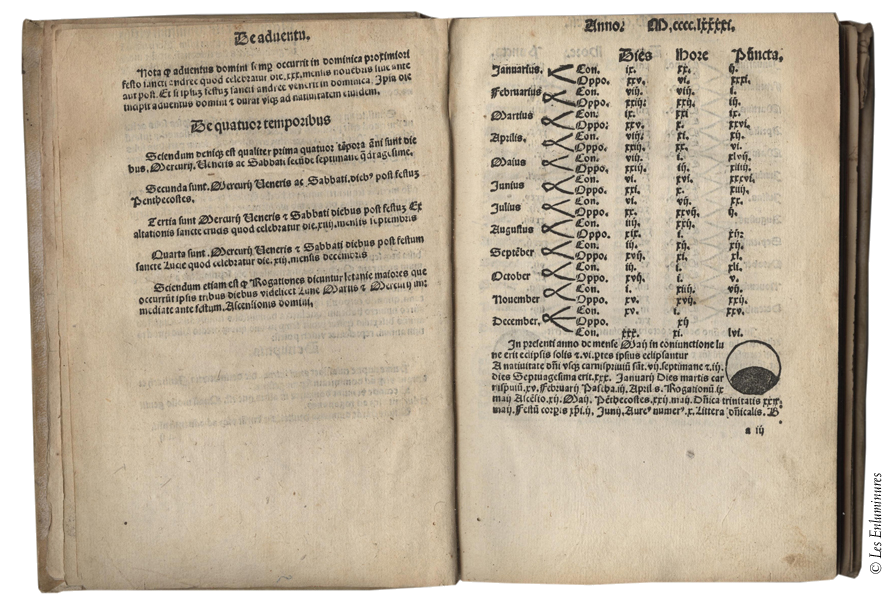 De aduentu.
Nota ꝙ aduentus domini semꝑ occurrit in dominica proximiori
festo sancti andree quod celebratur die .xxx. mensis nouēbris siue ante
aut post. Et si ipsuȝ festuȝ sancti andree venerit in dominica. Ipsa die
incipit aduentus domini ⁊ durat vsqȝ ad natiuitatem eiusdem.
De quatuor temporibus
Sciendum deniqȝ est qualiter prima quatuor tēpora āni sunt die
bus. Mercurij. Ueneris ac Sabbati secūde septimane q̄dragesime.
Secunda sunt. Mercurij Ueneris ac Sabbati. diebꝰ post festuȝ
Penthecostes.
Tertia sunt Mercurij Ueneris ⁊ Sabbati diebus post festuȝ Ex
altationis sancte crucis quod celebratur die .xiiij. mensis septembris
Quarta sunt. Mercurij Ueneris ⁊ Sabbati diebus post festum
sancte Lucie quod celebratur die .xiij. mensis decembris
Sciendum etiam est ꝙ Rogationes dicuntur letanie maiores que
occurrūt ipsis tribus diebus videlicet Lune Martis ⁊ Mercurij im
mediate ante festum. Ascensionis domini.
Anno: M.cccc.lxxxxi.
Dies Hore Pūcta.
Januarius. Con. ix. xx. ij.
Oppo. xxv. vi. xxxi.
Februarius Con. viij. viij. i.
Oppo. xxiij: xxij. iij.
Martius Con. ix. xxi ix.
Oppo: xxv. x. xxvi.
Aprilis. Con. viij. xi. xij.
Oppo. xxiij. xx. vi.
Maius Con. viij. i. xlvij.
Oppo. xxiij. iij. xiiij.
Junius Con. vi. xvi. xxxvi.
Oppo. xxi. x. xiij.
Julius Con. vi. vij. xx.
Oppo. xx. xxvij. ij.
Augustus Con. iiij. xxi. xxi.
Oppo. xix. i. xij:
Septēber Con. iij. xij. xij.
Oppo. xvij. xi. xl.
October Con. iij. i. xli.
Oppo. xvij. i. v.
Nouember Con. i. xiiij. vij.
Oppo. xv. xvij. xxij.
December. Con. xv. i.
Oppo. xij
Con. xxx. xi. lvi.
In presenti anno de mense Maij in coniunctione lu
ne erit eclipsis solis ⁊ .vi. ꝑtes ipsius eclipsantur
A natiuitate dn̄i vsqȝ carnispriuiū sūt. vij. septimane ⁊ .iij.
dies Septuagesima erit .xxx. Januarij Dies martis car
nispriuiū. xv. Februarij Pascha. iij. April s. Rogationū ix
maij Ascēsio. xij. Maij. Pēthecostes. xxij. maij. Dn̄ica trinitatis xxix
maij. Festū corꝑis xp̄i. ij. Junij. Aureꝰ numerꝰ. x. Littera dn̄icalis. B
a iij
© Les Enluminures